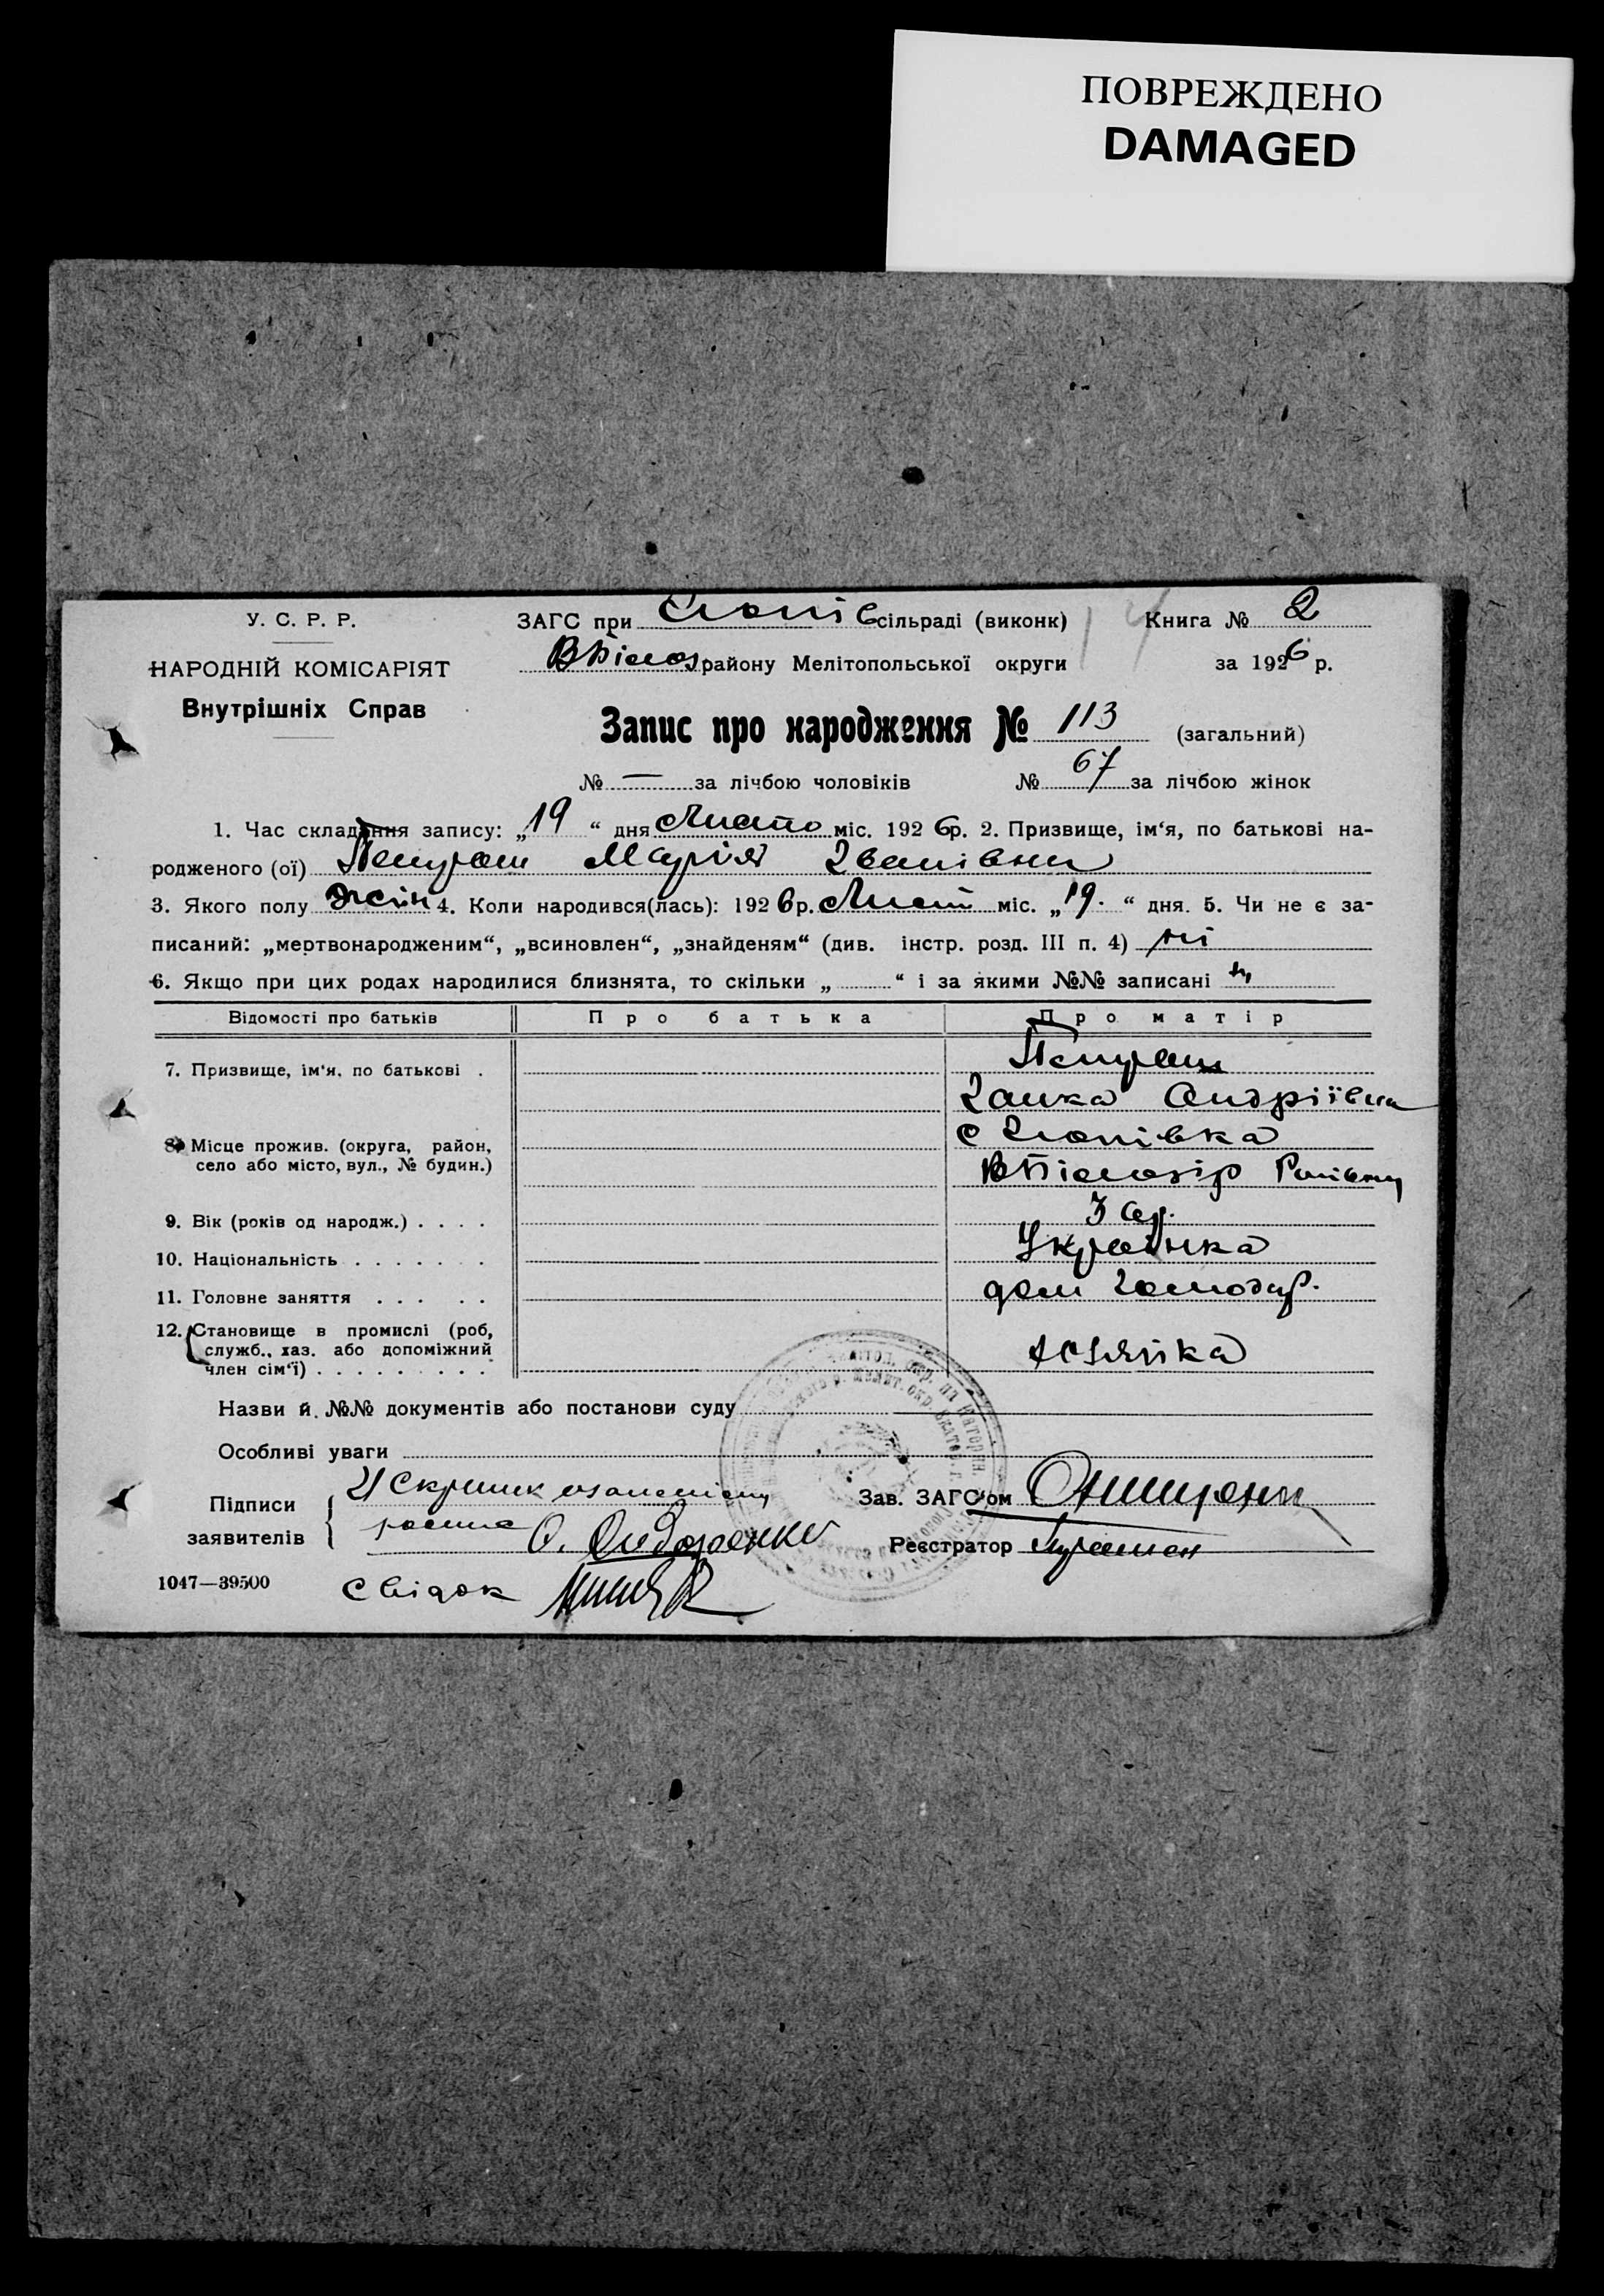 ПОВРЕЖДЕНО
DAMAGED
У. С. Р. Р.
НАРОДНІЙ КОМІСАРІЯТ
Внутрішніх Справ
ЗАГС при сільраді (виконк)
Книга № 2
району Мелітопольської округи
за 1926 р.
Запис про народження № 113 (загальний)
№ — за лічбою чоловіків № 67 за лічбою жінок
1. Час складання запису: „19“ дня Листо міс. 1926р. 2. Призвище, ім‘я, по батькові на-
родженого (ої) Марія Іванівна
3. Якого полу жін 4. Коли народився(лась): 1926р. Лист міс. „19.“ дня. 5. Чи не є за-
писаний: „мертвонародженим“, „всиновлен“, „знайденям“ (див. інстр. розд. III п. 4) ні
6. Якщо при цих родах народилися близнята, то скільки „ “ і за якими №№ записані
Відомості про батьків
Про батька
Про матір
7. Призвище, ім‘я, по батькові .
Ганка Андріївна
8. Місце прожив. (округа, район,
село або місто, вул., № будин.)
9. Вік (років од народж.) . . . .
10. Національність . . . . . . .
Українка
11. Головне заняття . . . . .
дом господар.
12. Становище в промислі (роб,
служб., хаз. або допоміжний
член сім‘ї) . . . . . . . . .
хозяйка
Назви й №№ документів або постанови суду
Особливі уваги
Підписи
заявителів
О. Сидоренко
Зав. ЗАГС‘ом
Реєстратор
1047—39500
Свідок